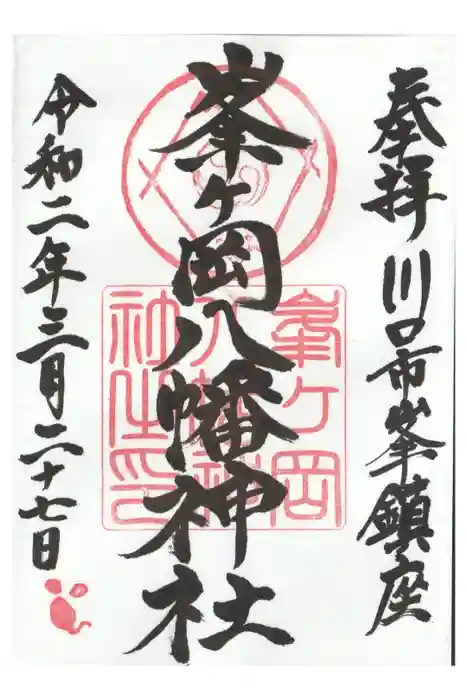 奉拝 川口市峯鎮座
峯ヶ岡八幡神社
峯ヶ岡八幡神社印
令和二年三月二十七日